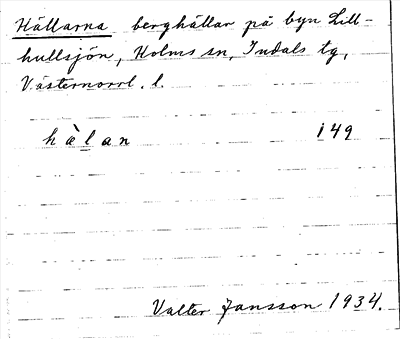 Hällarna berghällar på byn Lill-
hullsjön, Holms sn, Indals tg,
Västernorrl. l.
hà̀lan 149
Valter Jansson 1934.